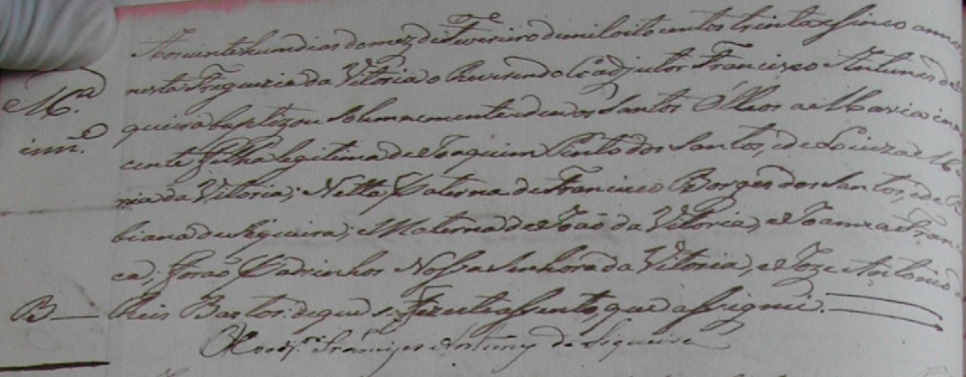 Aos vinte hum dias do mez de Fevereiro de mil oito centos trinta e sinco annos
nesta Freguezia da Vitoria o Reverendo Coadjutor Francisco Antunes de Se
Mª
queira baptizou solemnemente e deu os Santos Olleos a Maria inno
inn.e
cente filha legitima de Joaquim Pinto dos Santos, e de Luiza Ma
ria da Vitoria; Netta Paterna de Francisco Borges dos Santos, e de B
biana de Siqueira; Materna de João da Vitoria, e Joanna Fran
ca; forão Padrinhos Nossa Senhora da Vitoria, e Joze Antonio
B Reis Bastos: de que se fez este assento, que assignei.
O Coadj.or Francisco Antunes de Siqueira